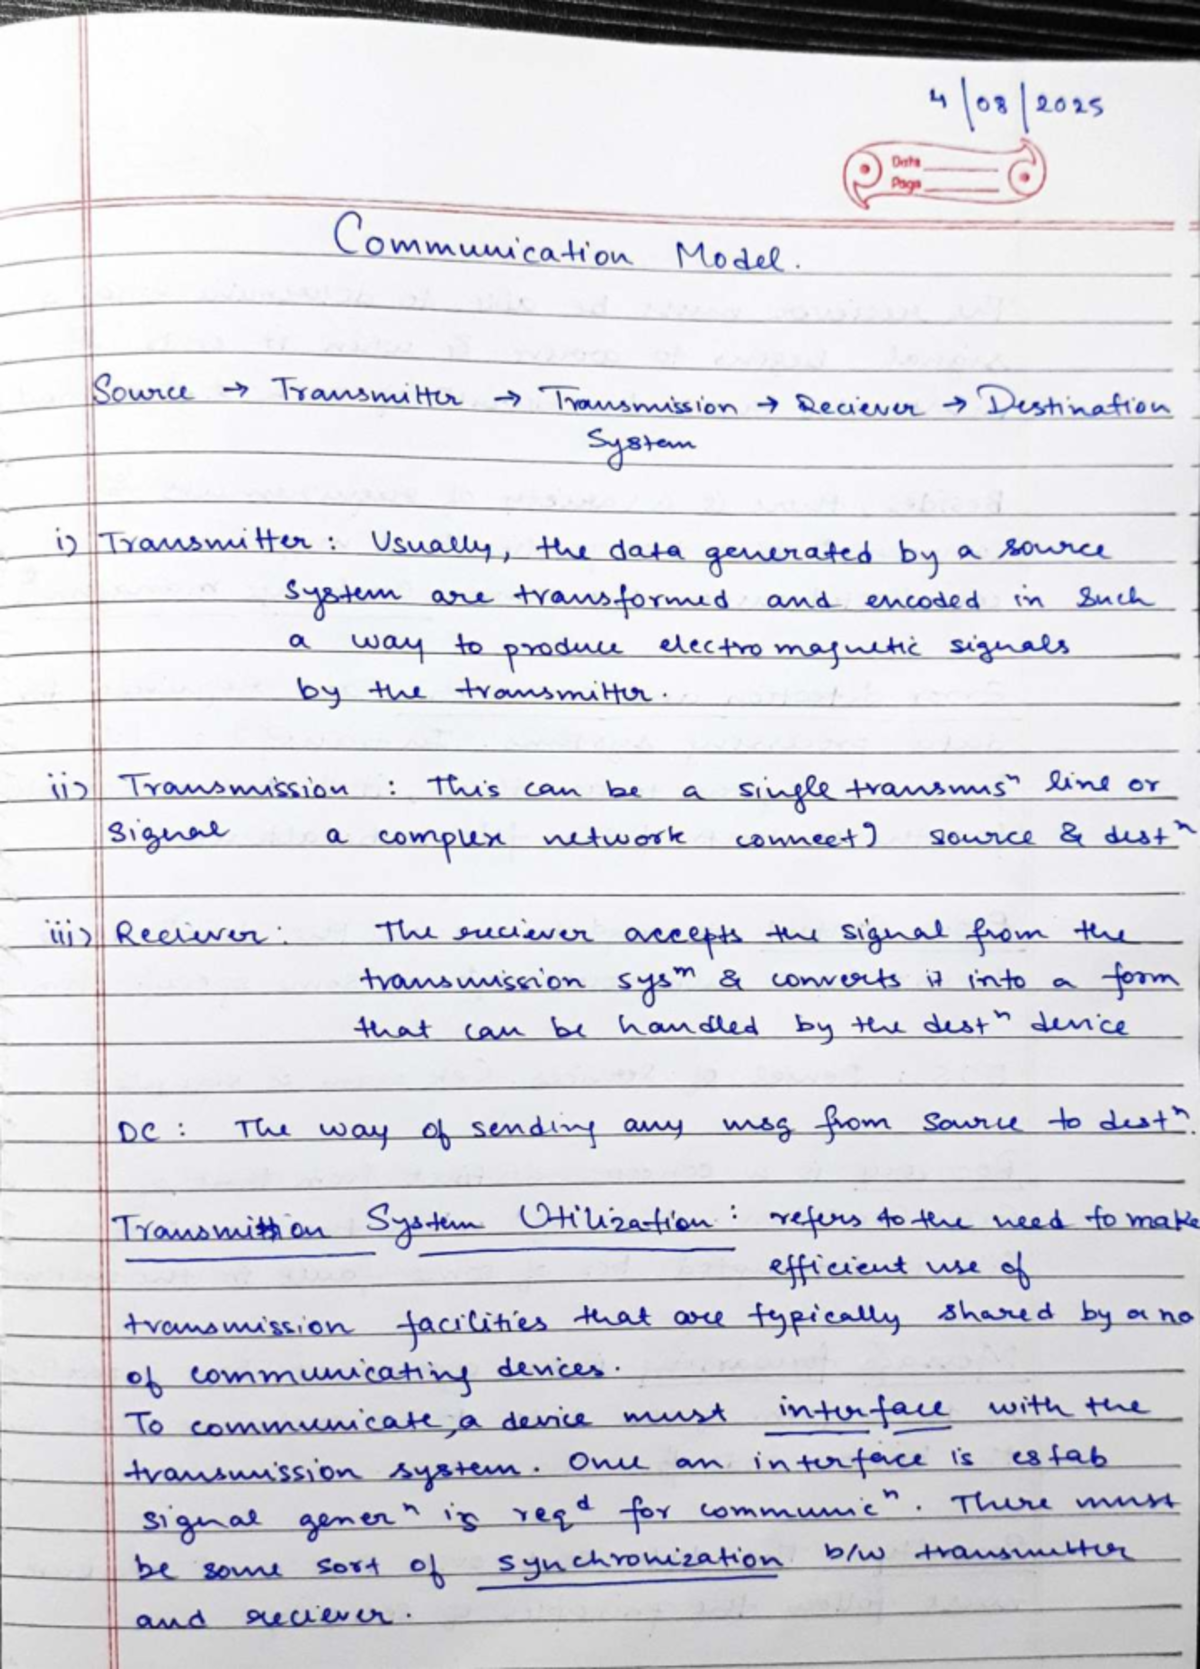 4/08/2025
Date
Page
Communication Model.
Source → Transmitter → Transmission → Reciever → Destination
System
i) Transmitter : Usually, the data generated by a source
system are transformed and encoded in such
a way to produce electromagnetic signals
by the transmitter.
ii) Transmission : This can be a single transmisⁿ line or
Signal a complex network connect) source & destⁿ
iii) Reciever : The reciever accepts the signal from the
transmission sysᵐ & converts it into a form
that can be handled by the destⁿ device
DC : The way of sending any msg from source to destⁿ.
Transmission System Utilization : refers to the need to make
efficient use of
transmission facilities that are typically shared by a no
of communicating devices.
To communicate, a device must interface with the
transmission system. Once an interface is estab
signal generⁿ is reqᵈ for communicⁿ. There must
be some sort of synchronization b/w transmitter
and reciever.